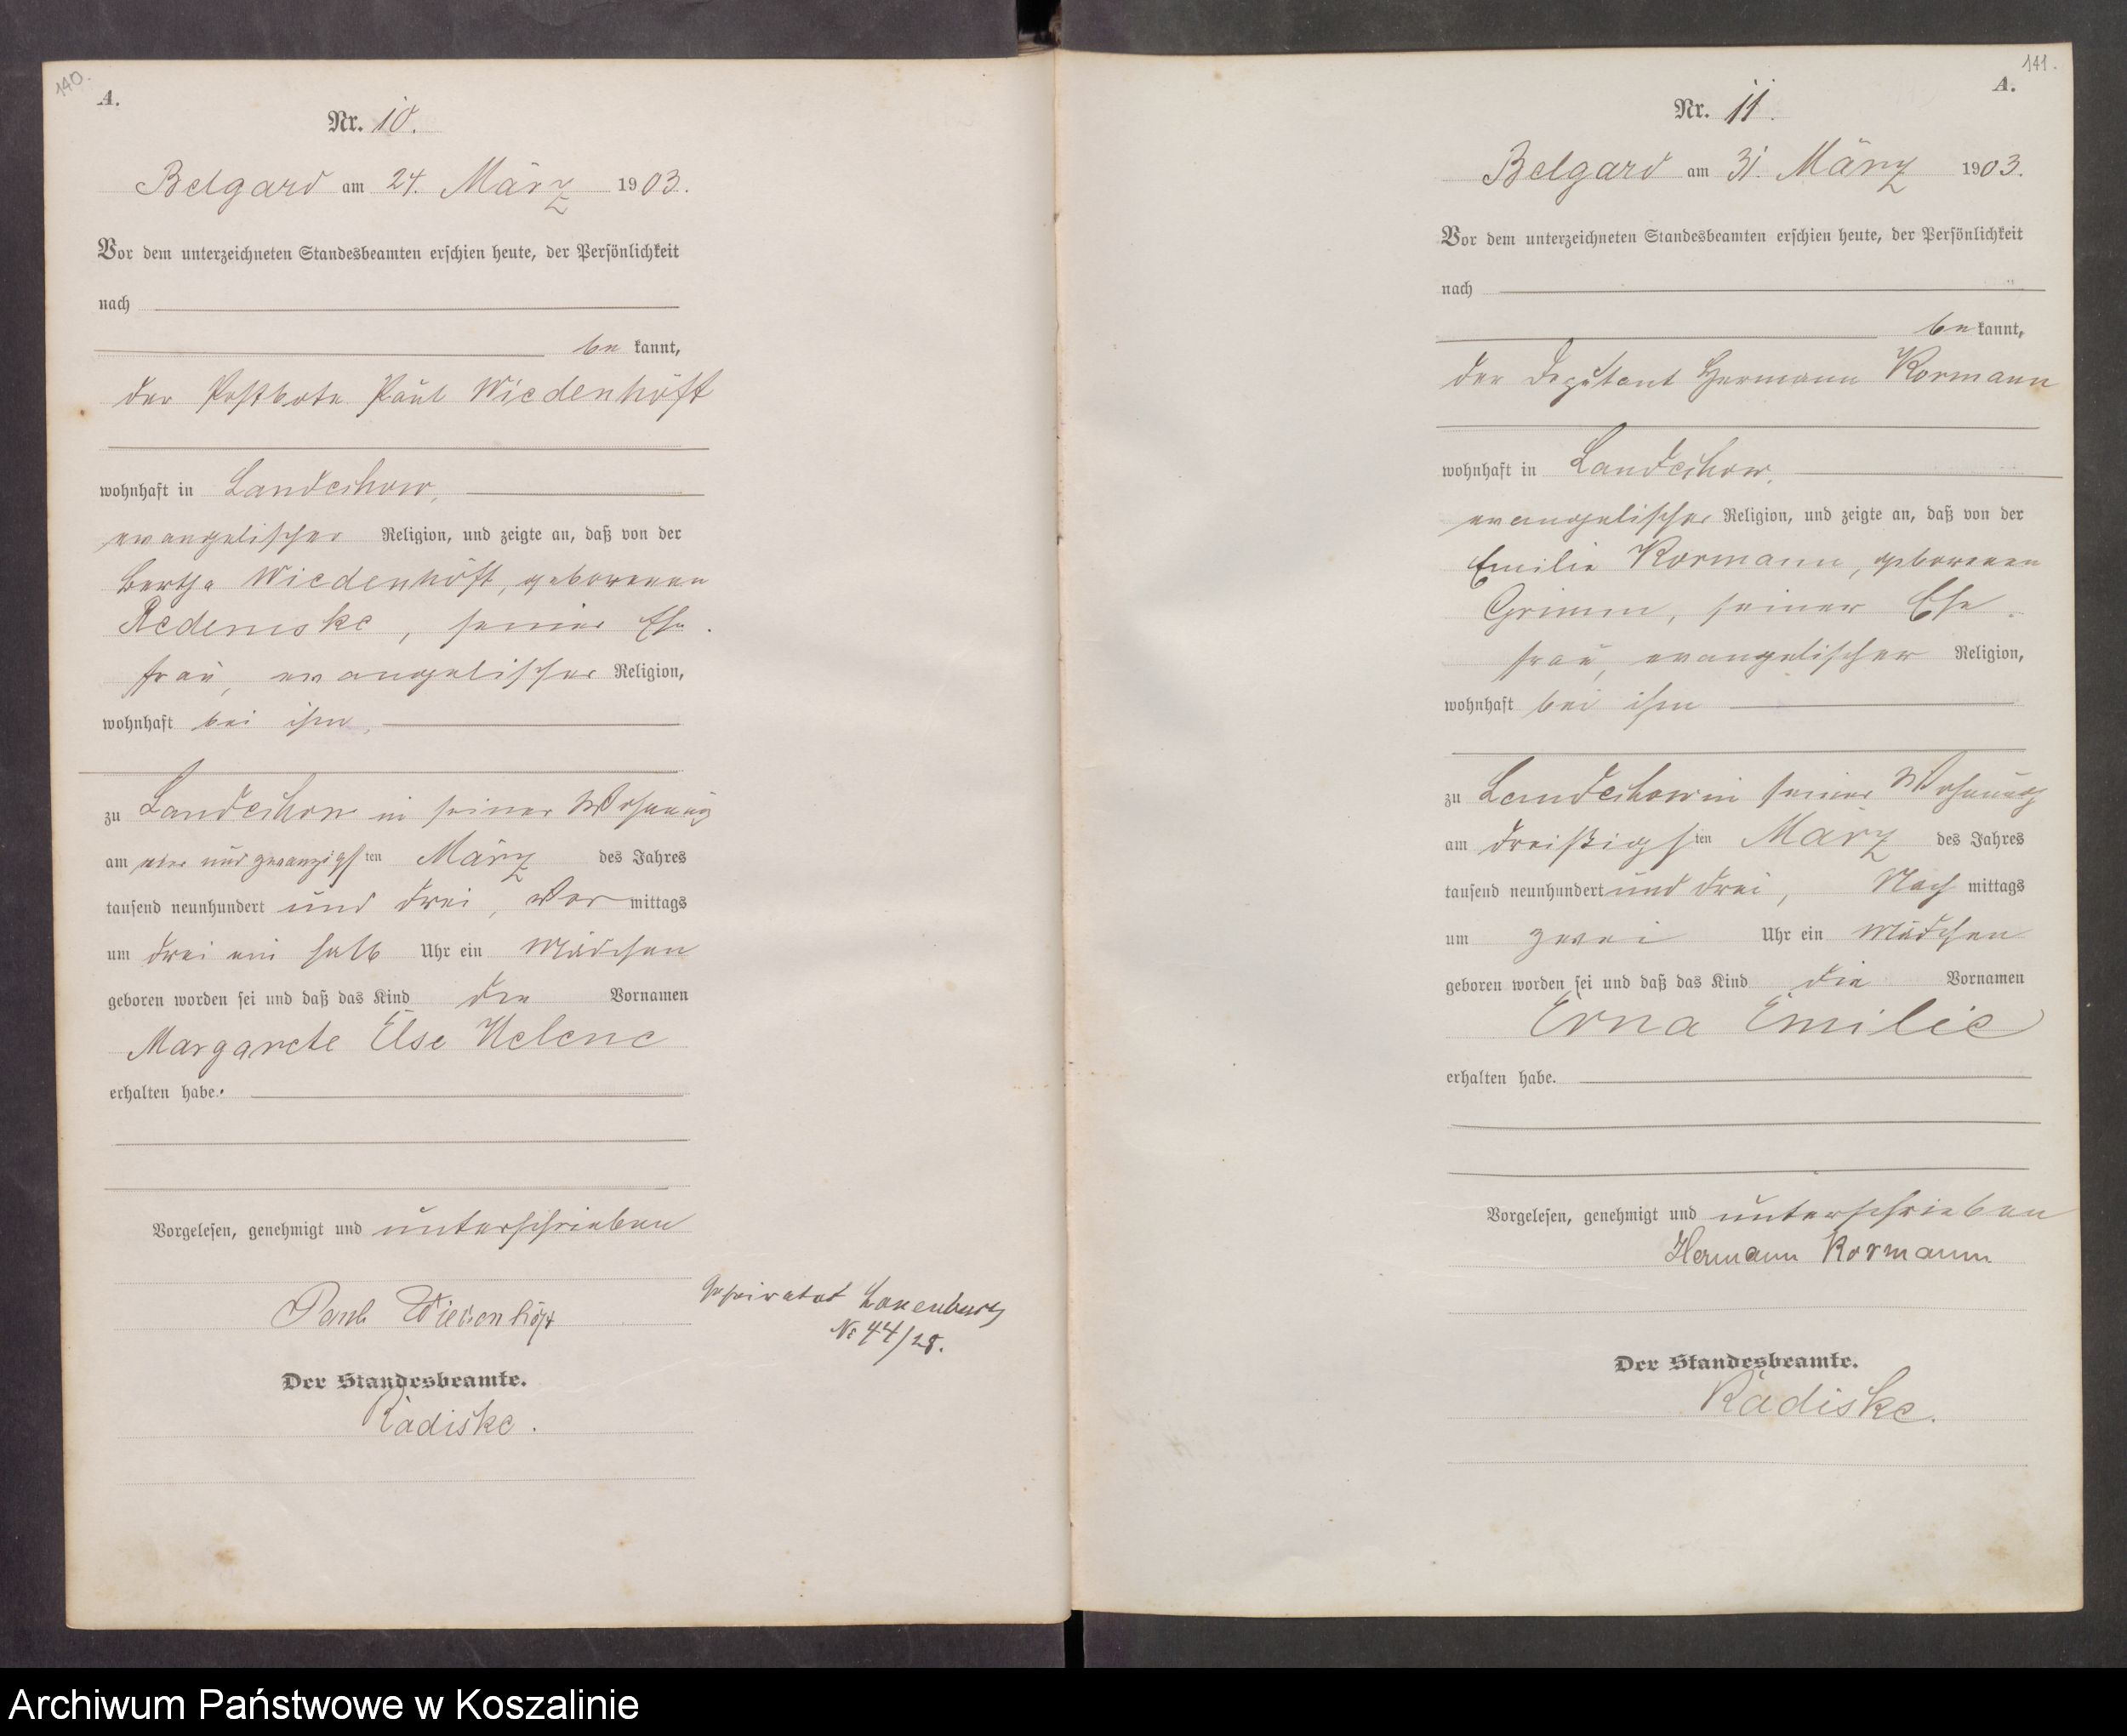 140.
A.
Nr. 10.
Belgard am 24. März 1903.
Vor dem unterzeichneten Standesbeamten erschien heute, der Persönlichkeit
nach
be kannt,
der Postbote Paul Wiedenhöft
wohnhaft in Landechow,
evangelischer Religion, und zeigte an, daß von der
Bertha Wiedenhöft, geborenen
Redemske, seiner Ehe-
frau, evangelischer Religion,
wohnhaft bei ihm,
zu Landechow in seiner Wohnung
am ein und zwanzigsten März des Jahres
tausend neunhundert und drei, Vor mittags
um drei ein halb Uhr ein Mädchen
geboren worden sei und daß das Kind die Vornamen
Margarete Else Helene
erhalten habe.
Vorgelesen, genehmigt und unterschrieben
Paul Wiedenhöft
Geheiratet Lauenburg
Nr 44/28.
Der Standesbeamte.
Radiske.
141.
A.
Nr. 11.
Belgard am 31. März 1903.
Vor dem unterzeichneten Standesbeamten erschien heute, der Persönlichkeit
nach
be kannt,
der Deputant Hermann Kormann
wohnhaft in Landechow,
evangelischer Religion, und zeigte an, daß von der
Emilie Kormann, geborenen
Grimm, seiner Ehe-
frau, evangelischer Religion,
wohnhaft bei ihm
zu Landechow in seiner Wohnung
am dreißigsten März des Jahres
tausend neunhundert und drei, Nach mittags
um zwei Uhr ein Mädchen
geboren worden sei und daß das Kind die Vornamen
Erna Emilie
erhalten habe.
Vorgelesen, genehmigt und unterschrieben
Hermann Kormann
Der Standesbeamte.
Radiske.
Archiwum Państwowe w Koszalinie